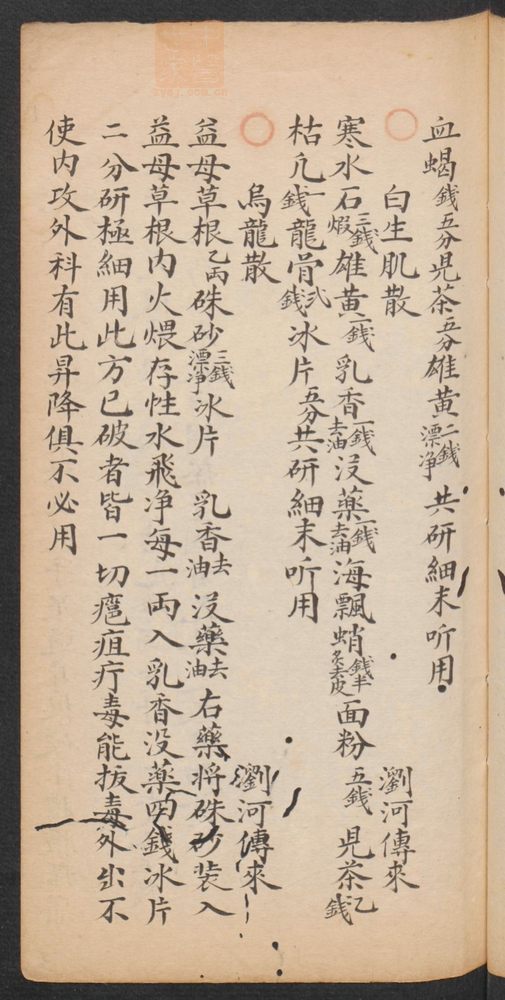 血蝎五分錢兒茶五分雄黃二錢漂净共研細末听用
白生肌散 劉河傳來
寒水石三錢煅雄黃一錢乳香一錢去油沒藥一錢去油海飄蛸錢半炙去皮面粉五錢兒茶乙錢
枯凡一錢龍骨弍錢冰片五分共研細末听用
烏龍散 劉河傳來
益母草根乙丙硃砂三錢漂净冰片 乳香去油沒藥去油右藥將硃砂装入
益母草根内火煨存性水飛净每一両入乳香沒藥四錢冰片
二分研極細用此方已破者皆一切癰疽疔毒能拔毒外出不
使内攻外科有此昇降俱不必用